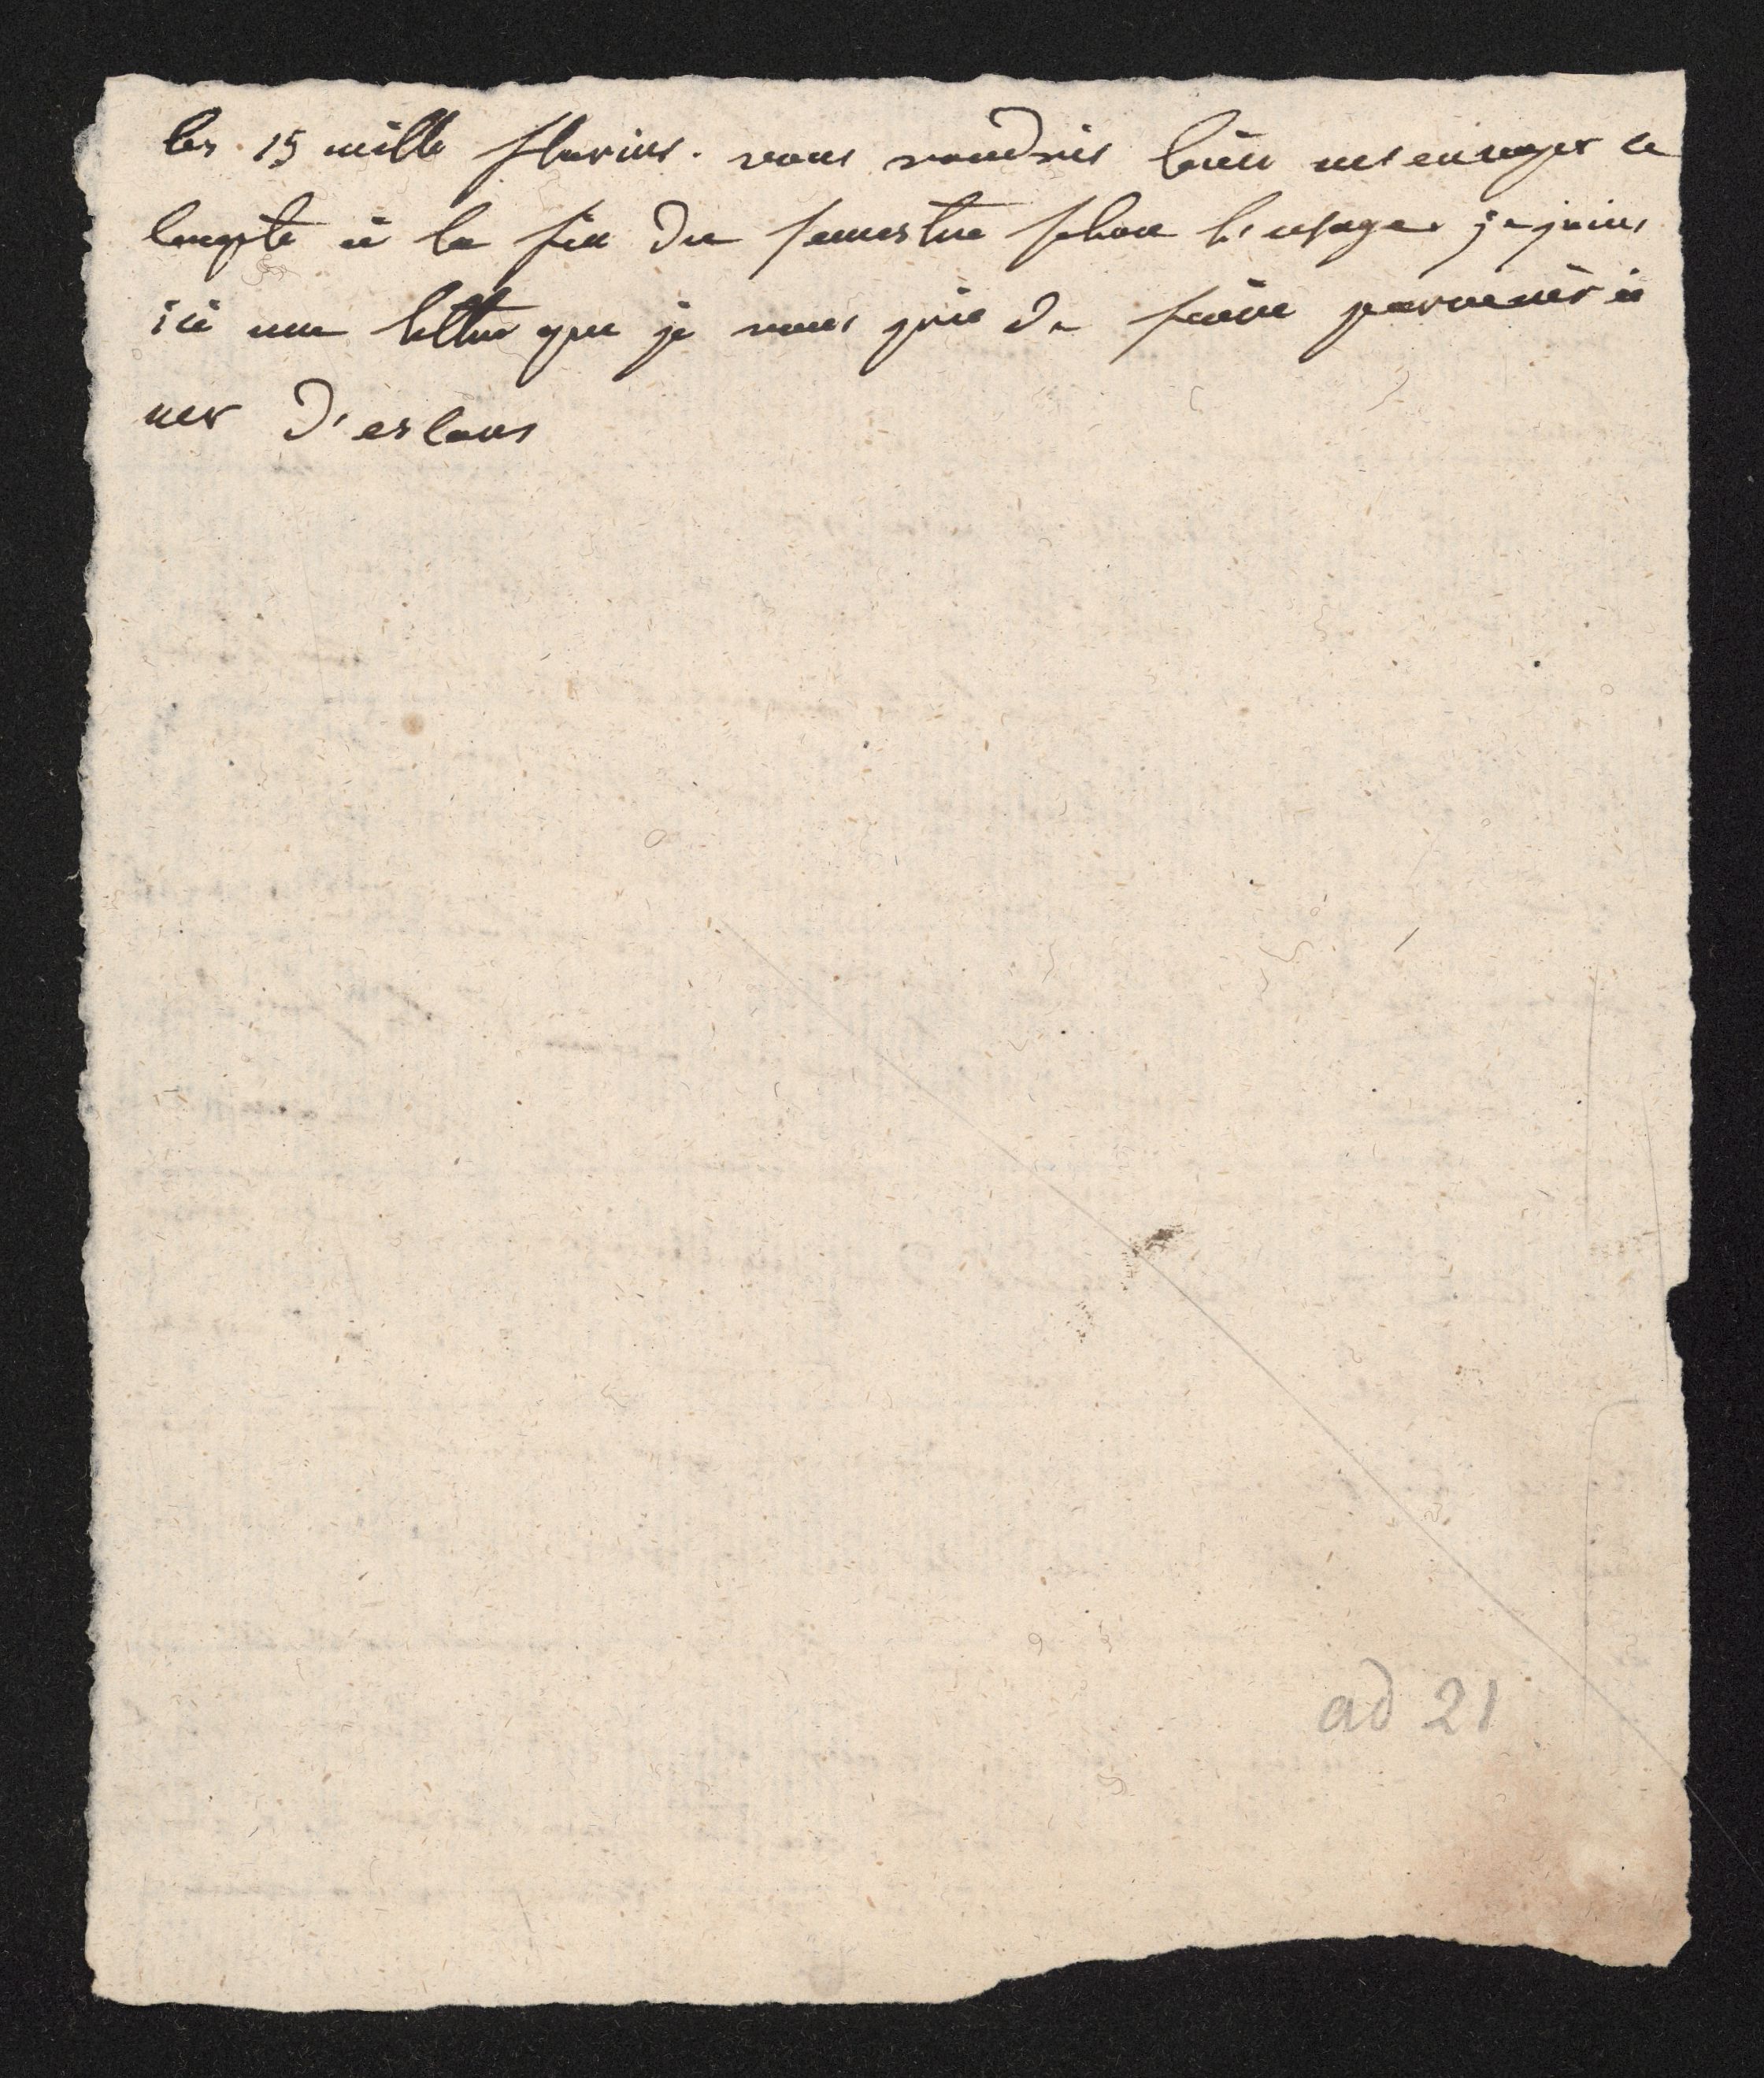 les 15 mille florins. vous voudrés bien m'envoyer ce
compte à la fin du semestre selon l'usage. je joins
ici une lettre que je vous prie de faire parvenir à
mr d'esclans
ad 21